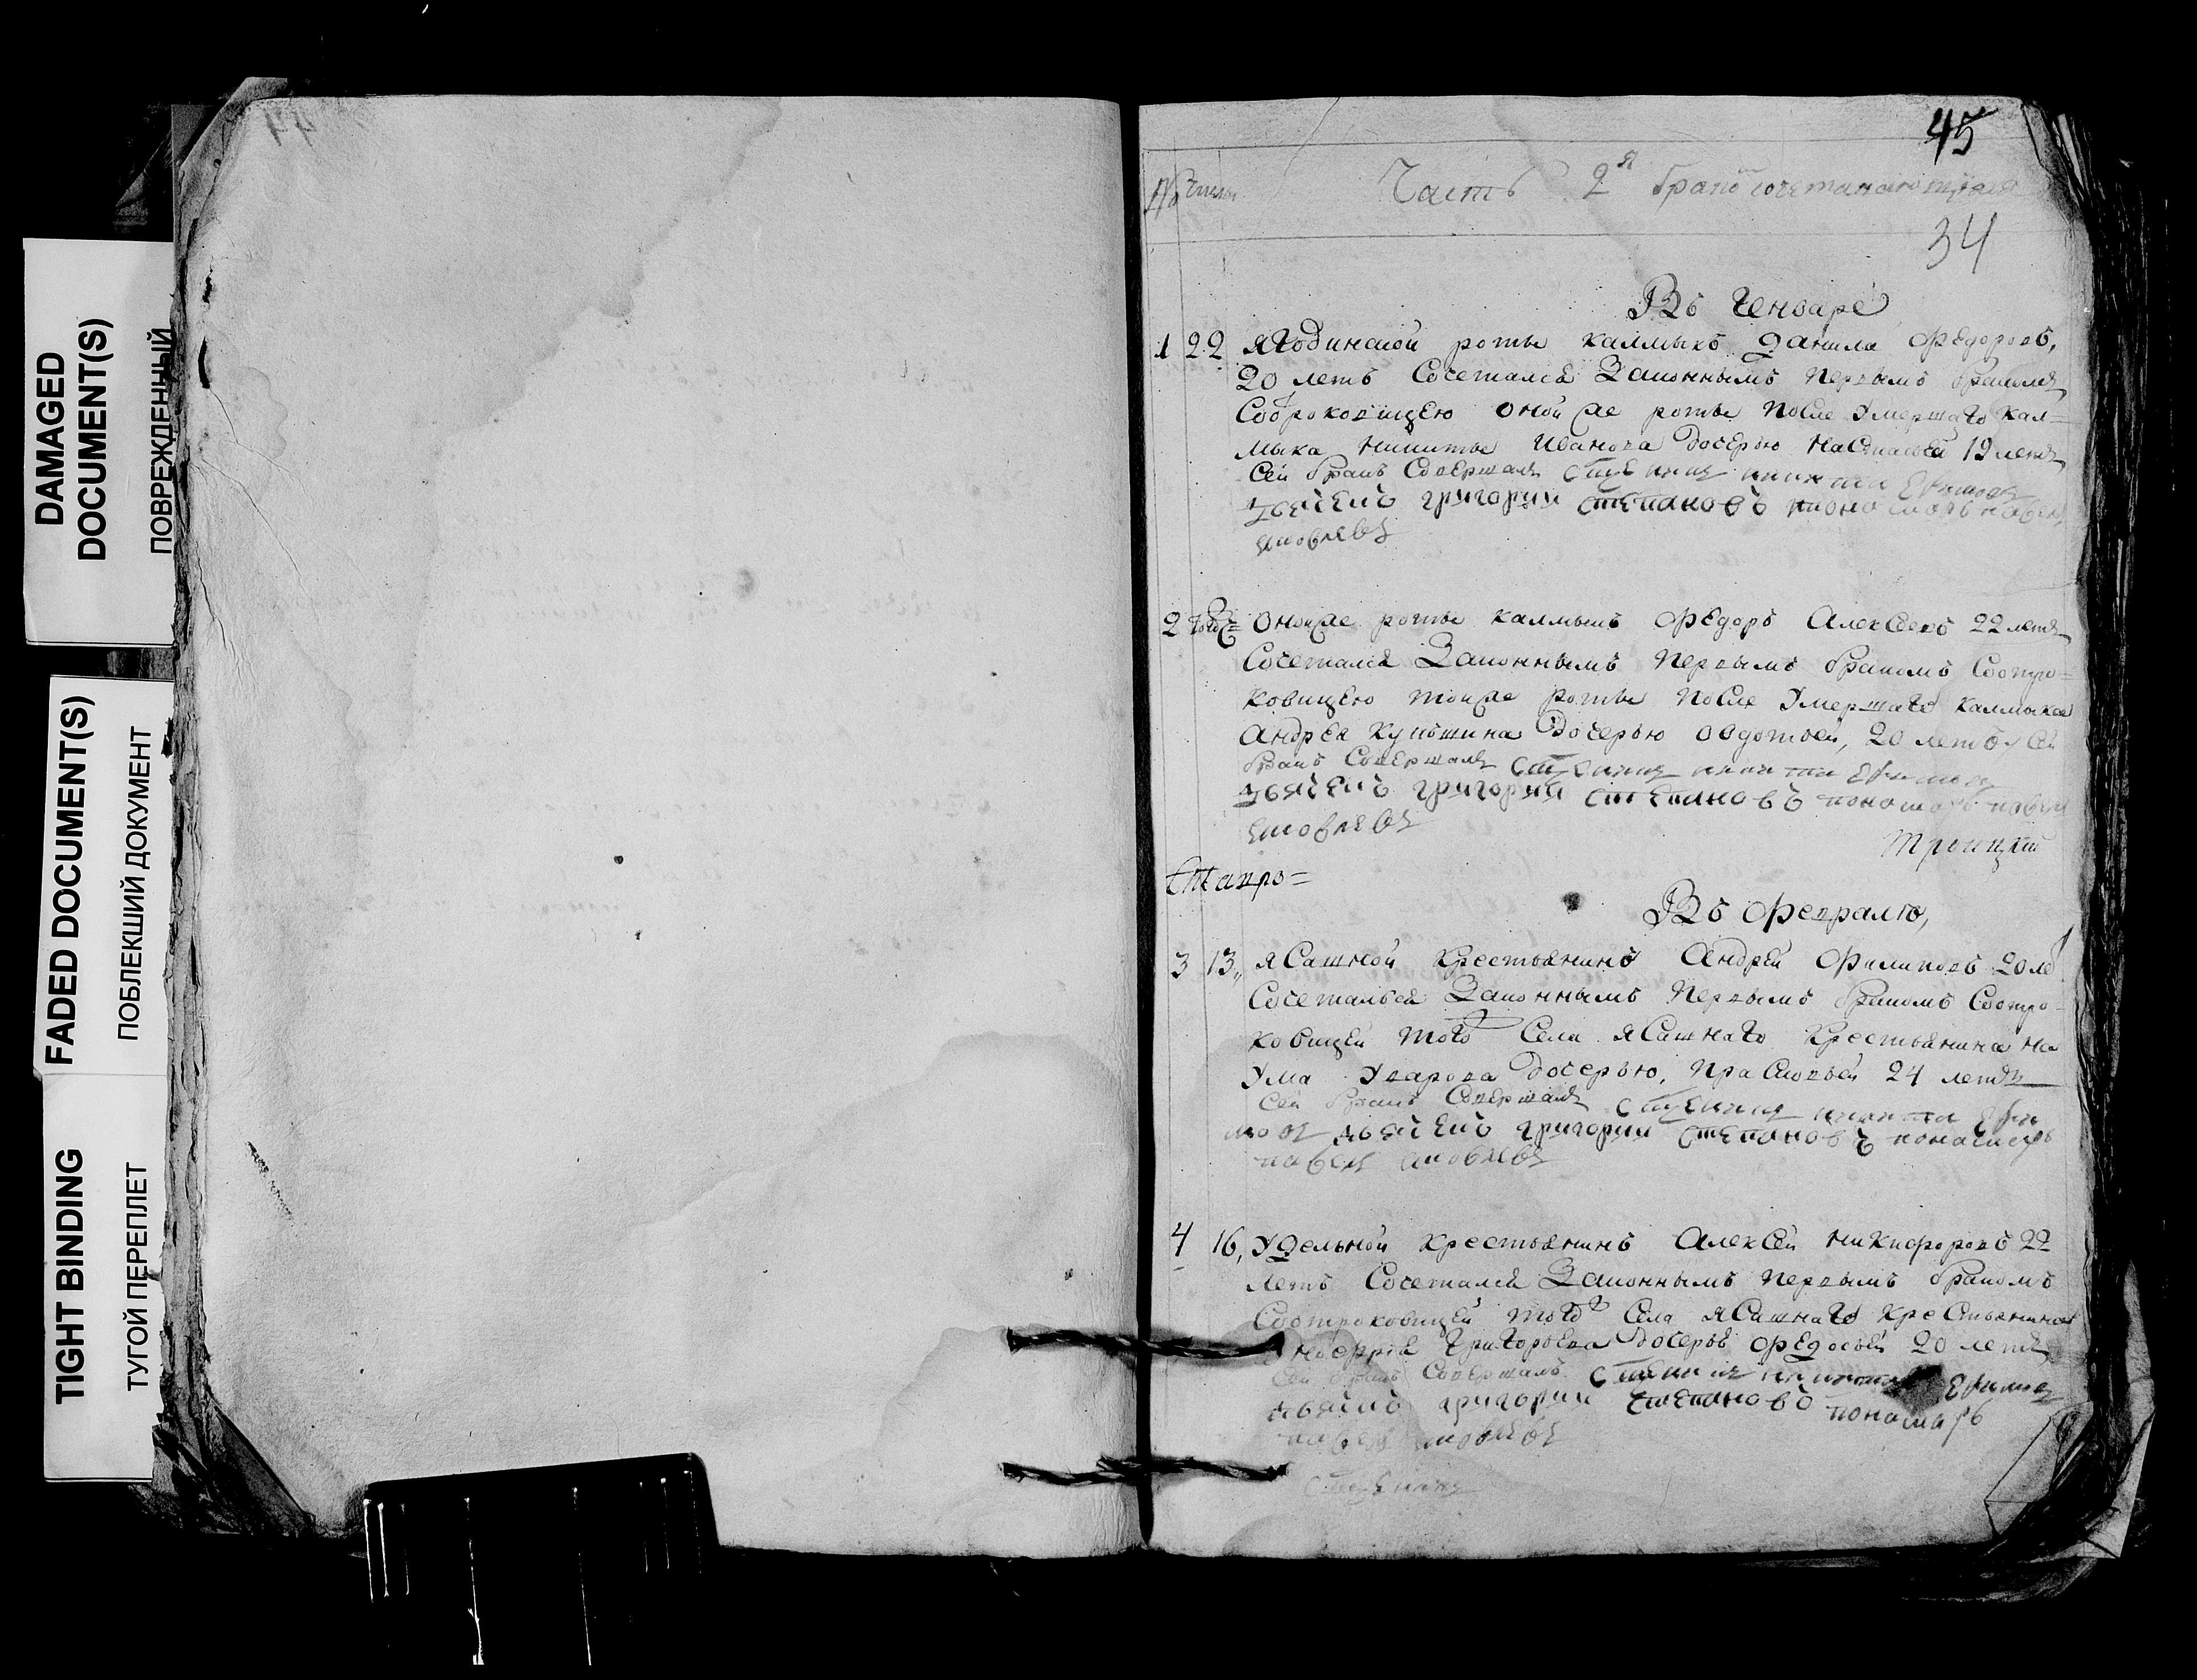 DAMAGED
DOCUMENT(S)
ПОВРЕЖДЕННЫЙ
FADED DOCUMENT(S)
ПОБЛЕКШИЙ ДОКУМЕНТ
TIGHT BINDING
ТУГОЙ ПЕРЕПЛЕТ
44
45
№ числы Часть 2я
34
Въ Генваре
1 22 Ягодинской роты калмыкъ Данила Федоровъ,
20 летъ Сочетался Законнымъ Первымъ бракомъ
Соотроковицею оной же роты После Умершаго Кал=
мыка Никиты Иванова Дочерью Настасьей 19 летъ
Сей бракъ Совершалъ Сщенникъ никита Ефимовъ
дьячекъ григорий степановъ пономарь павелъ
яковлевъ
2 того ж= Оной же роты калмыкъ Федоръ Алексеевъ 22 летъ
Сочетался Законнымъ Первымъ бракомъ Соотро=
ковицею той же роты После Умершаго калмыка
Андрея Дочерью Овдотьей, 20 летъ Сей
бракъ Совершалъ Сщенникъ никита Ефимовъ
дьячекъ григорий степановъ пономарь павелъ
яковлевъ
Троицкий
Въ Феврале,
3 13 „ Ясашной крестьянинъ Андрей Филиповъ 20 ле
Сочетался Законнымъ Первымъ бракомъ Соотро
ковицей того Села Ясашнаго Крестьянина На
ума Уварова Дочерью, Прасковьей 24 летъ
Сей бракъ Совершалъ Сщенникъ никита Ефи
мовъ дьячекъ григорий степановъ пономарь
павелъ яковлевъ
4 16, Удельной Крестьянинъ Алексей Никифоровъ 22
летъ Сочетался Законнымъ Первымъ бракомъ
Соотроковицей того Села Ясашнаго Крестьянина
Григорьева Дочерью Федосьей 20 летъ
Сей бракъ Совершалъ Сщенникъ никита Ефимовъ
дьячекъ григорий степановъ пономарь
павелъ яковлевъ
Сщенникъ